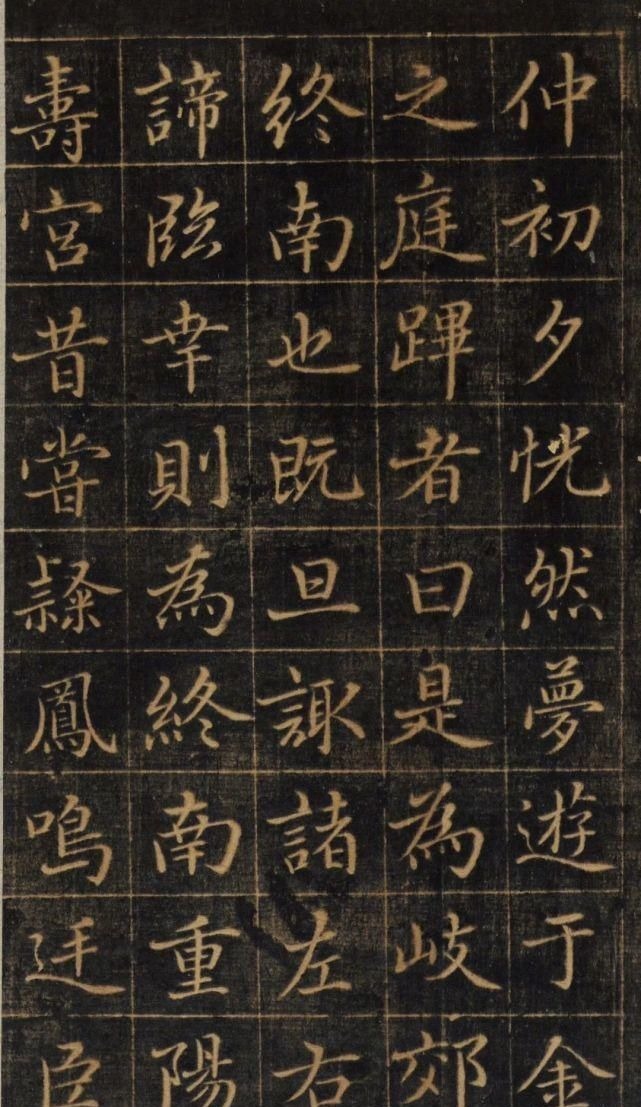 仲初夕恍然夢遊于金
之庭蹕者曰是為岐郊
終南也既旦諏諸左右
諦臨幸則為終南重陽
壽宮昔嘗隸鳳鳴廷臣